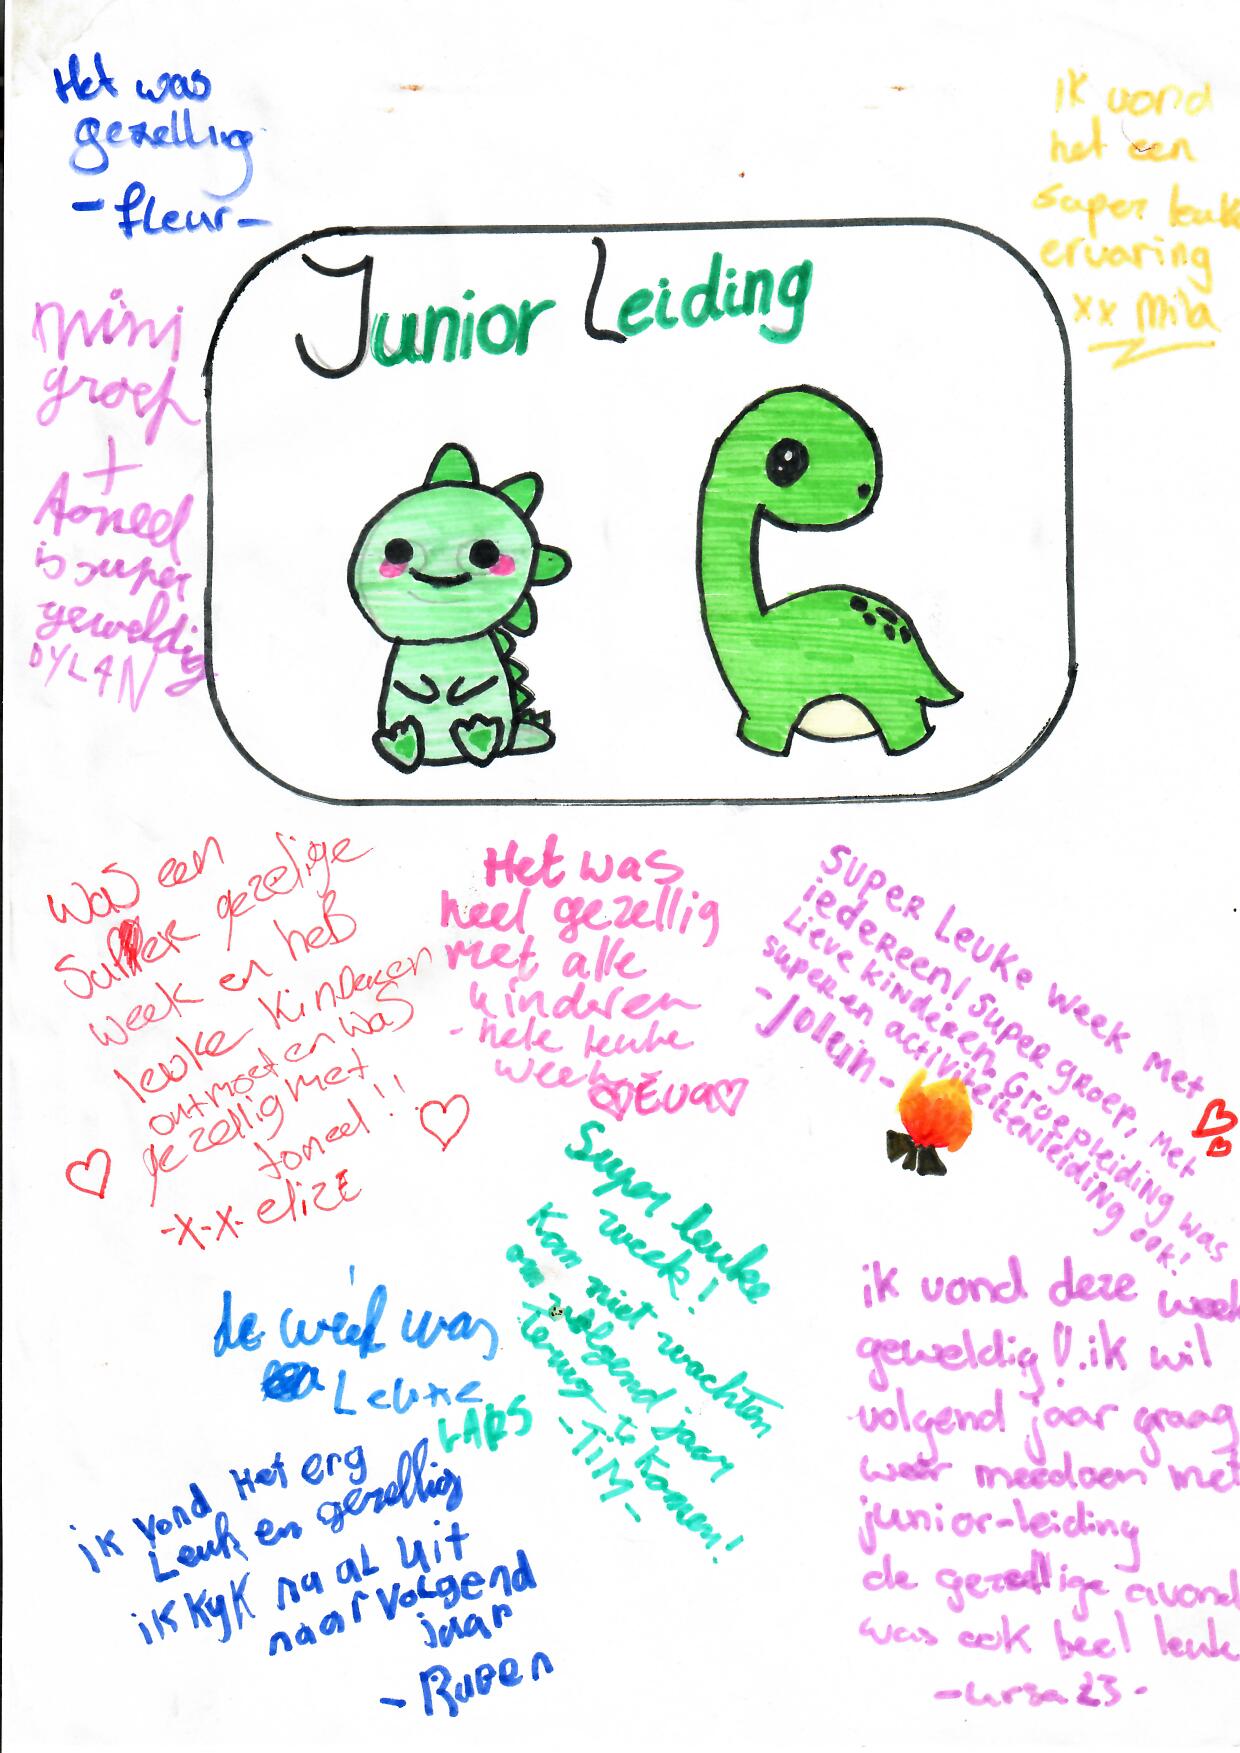 Het was
gezellig
- fleur -
ik vond
het een
super leuke
ervaring
xx Mila
Junior Leiding
mini
groep
+
Toneel
is super
geweldig
DYLAN
Was een
super gezelige
week en heb
leuke kinderen
ontmoet en was
gezellig met
toneel!!
-x-x- elize
Het was
heel gezellig
met alle
kinderen
- hele leuke
week
♡EVA♡
SUPER LEUKE WEEK MET
iedereen! SUPER groep, MET
Lieve kinderen. Groepleiding was
super en activiteitenleiding ook!
- Jolein -
Super leuke
week!
Kan niet wachten
om volgend jaar
terug te komen!
- TIM -
de week was
Leuke
LARS
ik vond Het erg
Leuk en gezellig
ik kyk na al uit
naar volgend
jaar
- Ruben
ik vond deze week
geweldig!! ik wil
volgend jaar graag
weer meedoen met
junior-leiding
de gezellige avond
was ook heel leuk